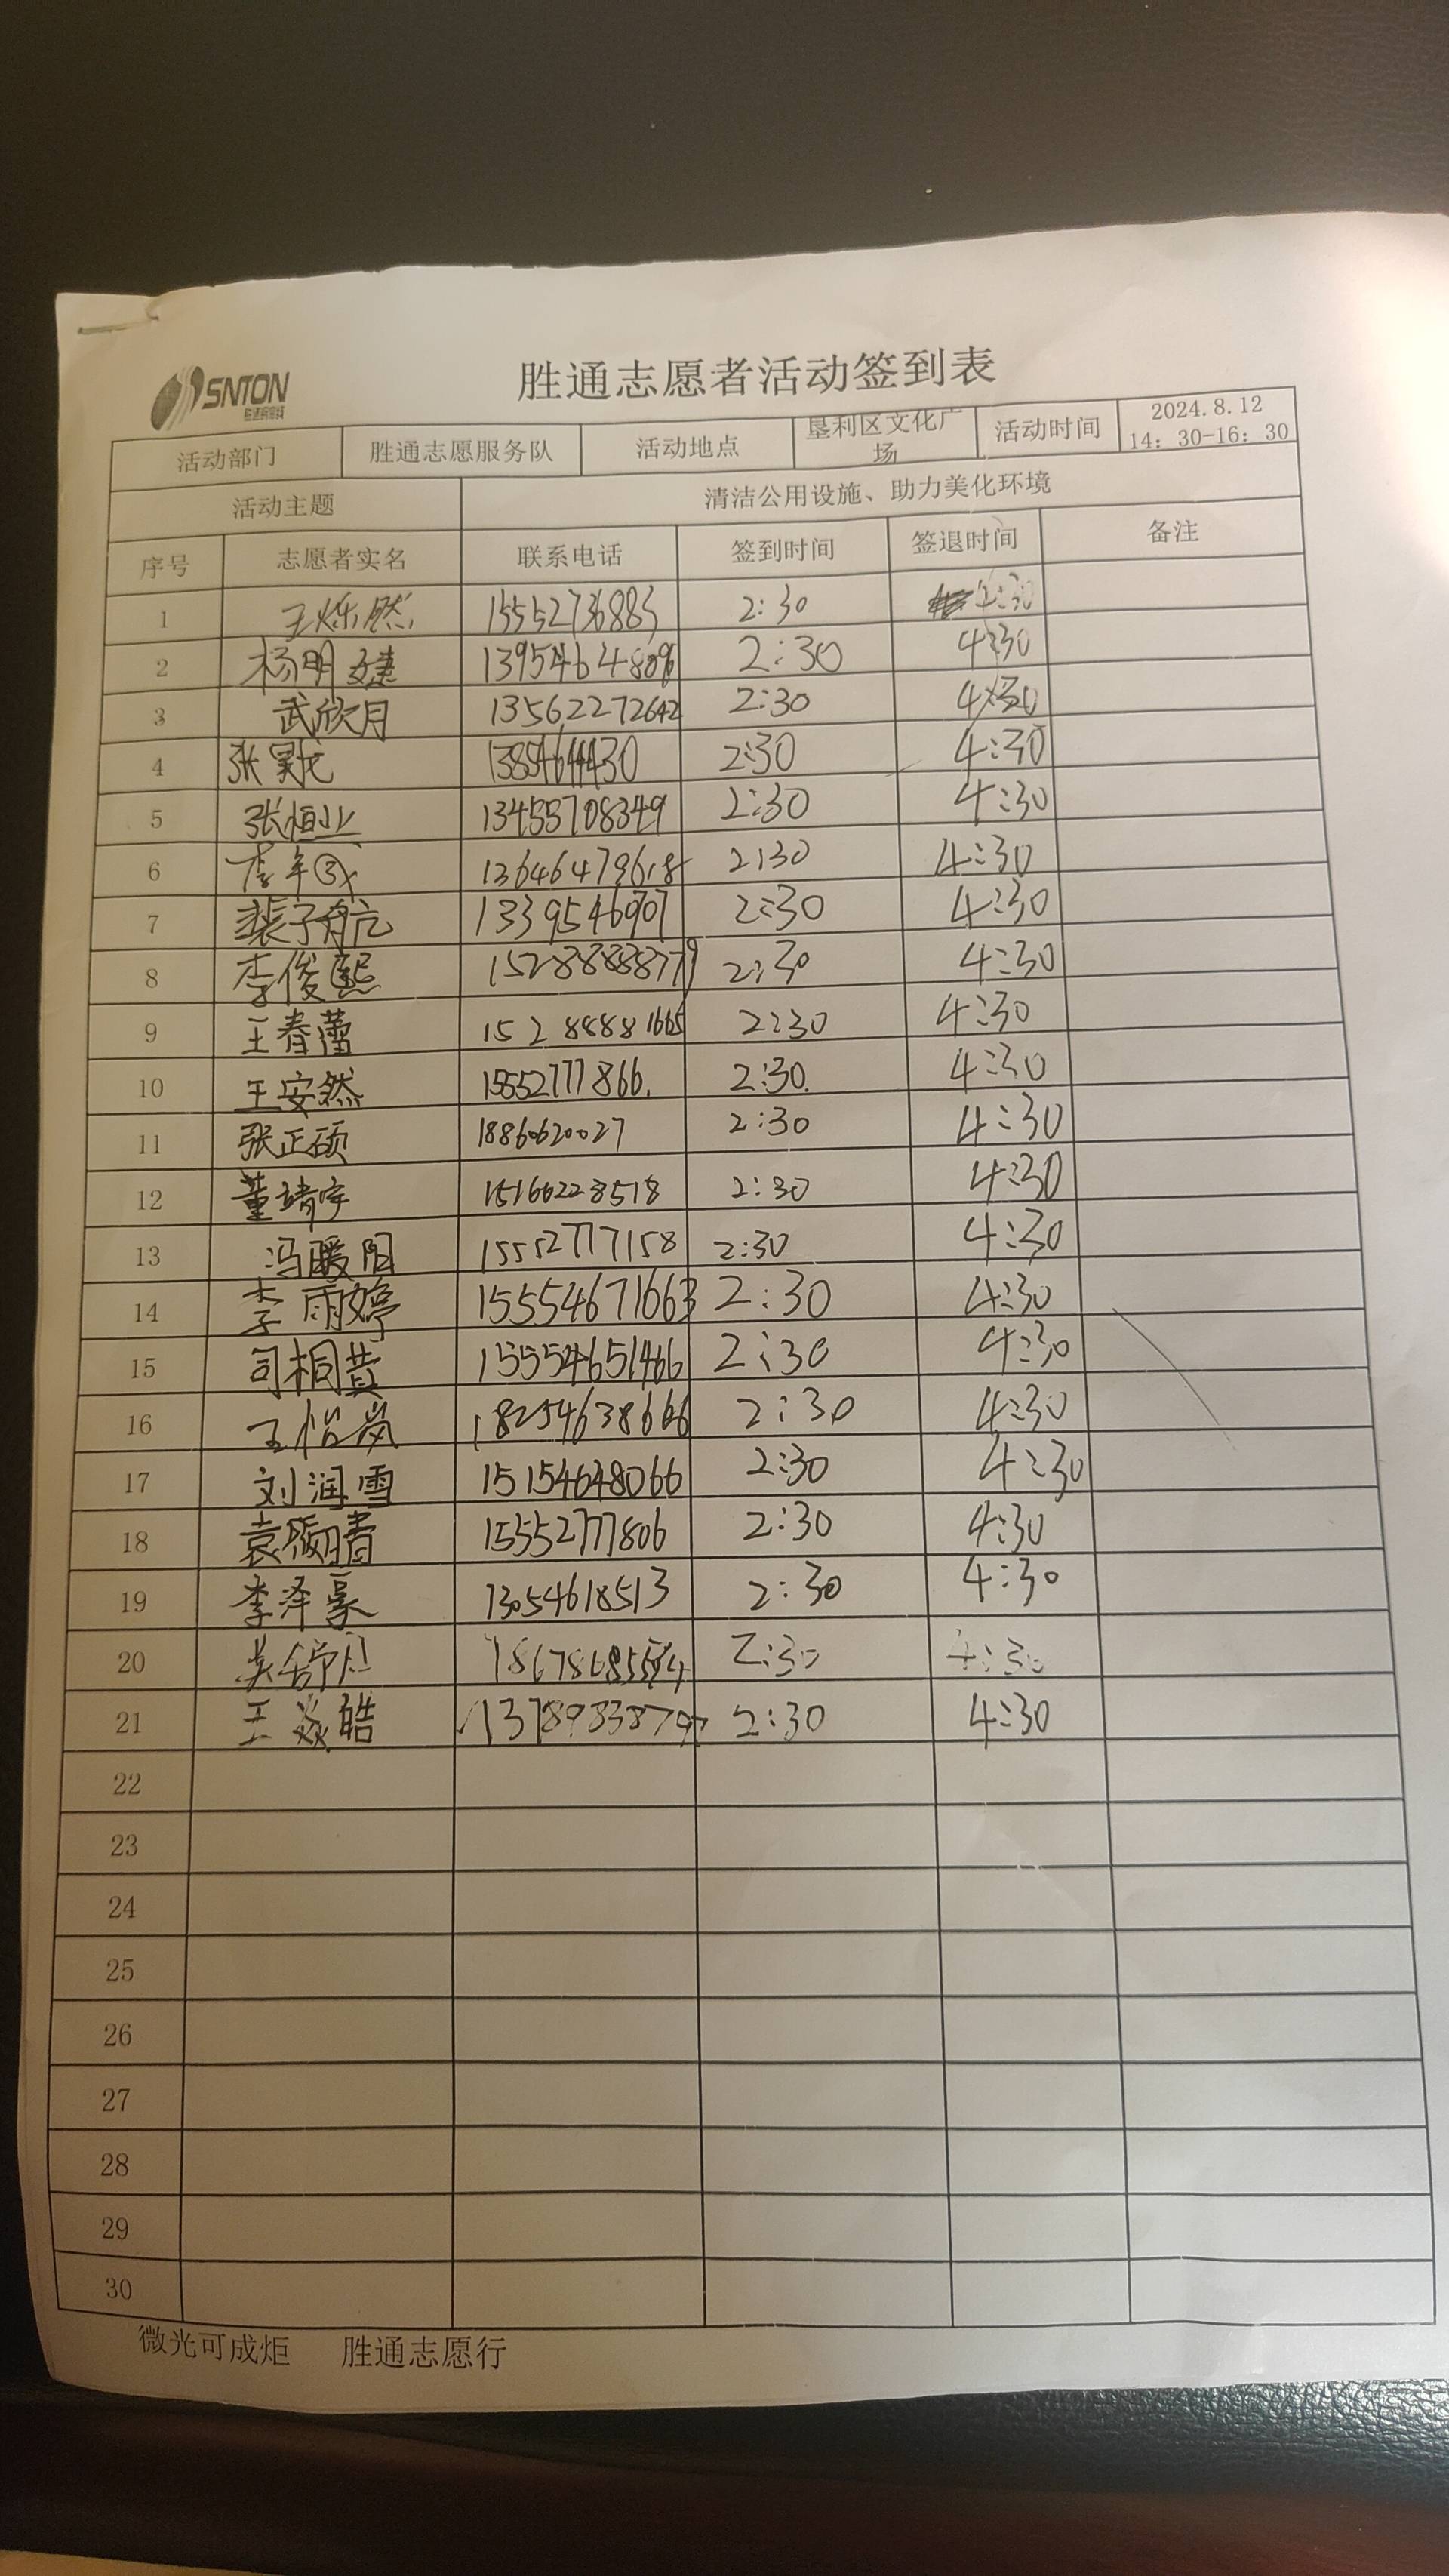 SNTON
胜通志愿者活动签到表
活动部门 胜通志愿服务队 活动地点 垦利区文化广场 活动时间 2024.8.12 14：30-16：30
活动主题 清洁公用设施、助力美化环境
序号 志愿者实名 联系电话 签到时间 签退时间 备注
1 王烁然 15552736883 2:30
2 杨明婕 2:30 4:30
3 武欣月 13562272642 2:30 4:30
4 张昊龙 2:30 4:30
5 张恒业 13455708349 2:30 4:30
6 13646479618 2:30 4:30
7 裴子航 2:30 4:30
8 李俊熙 2:30 4:30
9 王春蕾 15288881665 2:30 4:30
10 王安然 15552777866. 2:30. 4:30
11 张正硕 18860620027 2:30 4:30
12 董靖宇 15166228518 2:30 4:30
13 冯暖阳 15552777158 2:30 4:30
14 李雨婷 15554671663 2:30 4:30
15 司桐菁 15554651466 2:30 4:30
16 王怡岚 18254638666 2:30 4:30
17 刘润雪 15154648066 2:30 4:30
18 15552777806 2:30 4:30
19 李泽豪 13054618513 2:30 4:30
20 吴舒月 2:30 4:30
21 王焱皓 2:30 4:30
22
23
24
25
26
27
28
29
30
微光可成炬 胜通志愿行